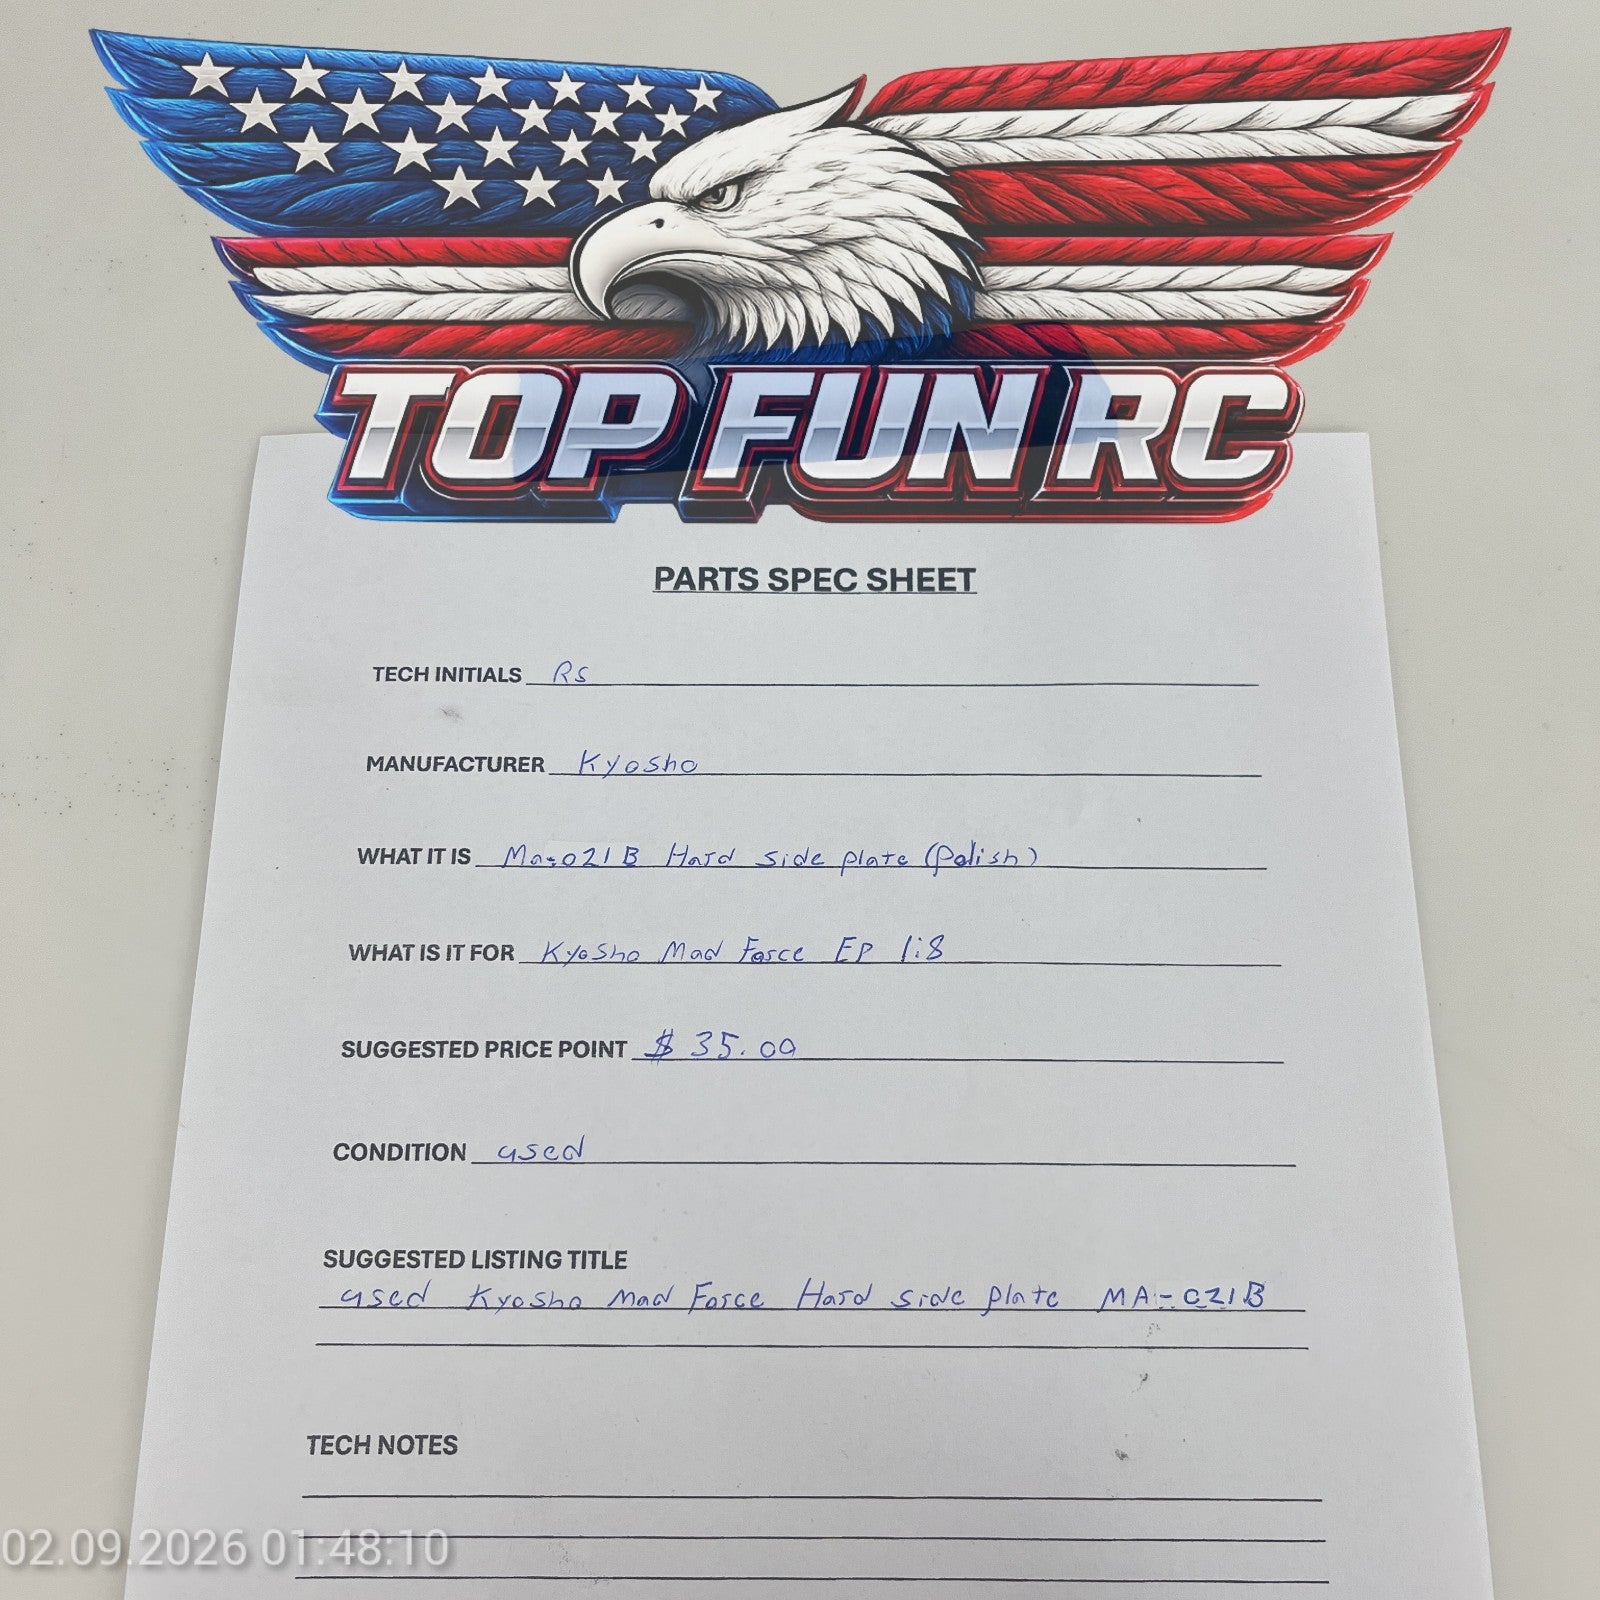 TOP FUN RC
PARTS SPEC SHEET
TECH INITIALS RS
MANUFACTURER Kyosho
WHAT IT IS Ma-021B Hard side plate (Polish)
WHAT IS IT FOR Kyosho Mad Force EP 1:8
SUGGESTED PRICE POINT $ 35.00
CONDITION used
SUGGESTED LISTING TITLE
used Kyosho Mad Force Hard side plate MA-021B
TECH NOTES
02.09.2026 01:48:10